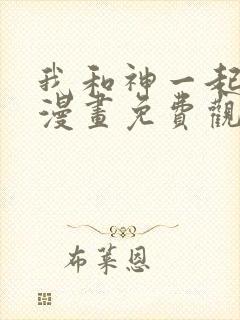 我和神一起
漫畫免費觀
布萊恩